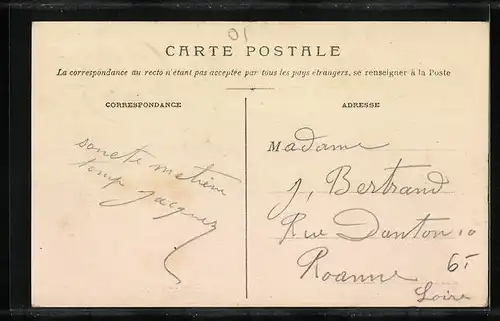 01
CARTE POSTALE
La correspondance au recto n'étant pas acceptée par tous les pays étrangers, se renseigner à la Poste
CORRESPONDANCE
Jacques
ADRESSE
Madame
J. Bertrand
Rue Danton 10
Roanne
Loire
6.-